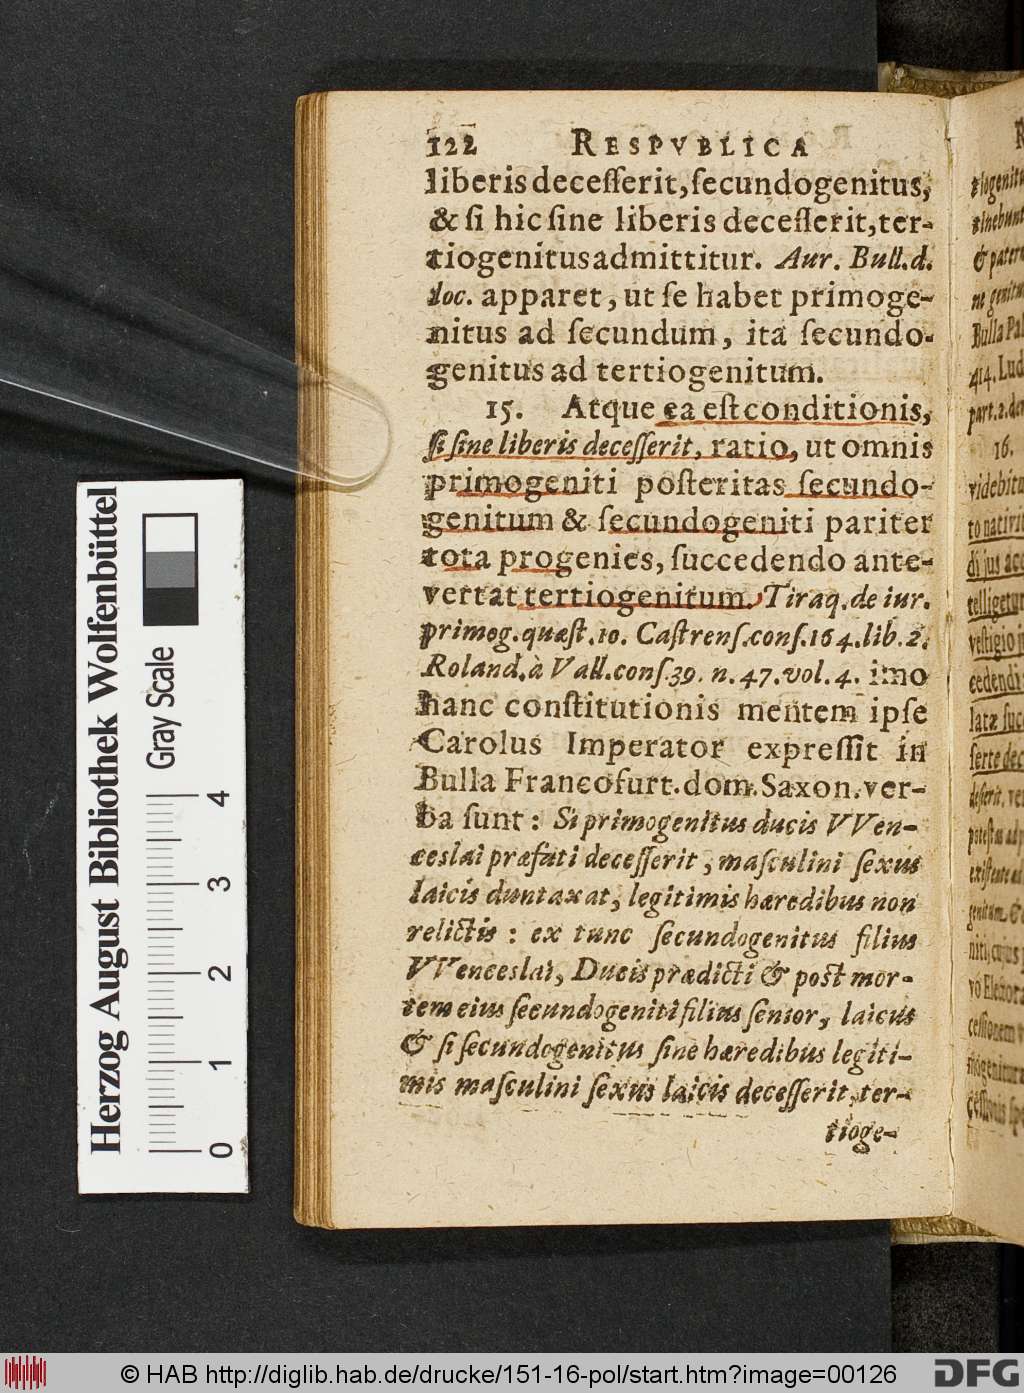 122 RESPVBLICA
liberis deceſſerit, ſecundogenitus,
& ſi hic ſine liberis deceſſerit, ter-
tiogenitus admittitur. Aur. Bull. d.
loc. apparet, ut ſe habet primoge-
nitus ad ſecundum, ita ſecundo-
genitus ad tertiogenitum.
15. Atque ea eſt conditionis,
ſi ſine liberis deceſſerit, ratio, ut omnis
primogeniti poſteritas ſecundo-
genitum & ſecundogeniti pariter
tota progenies, ſuccedendo ante-
vertat tertiogenitum. Tiraq. de iur.
primog. quæſt. 10. Caſtrenſ. conſ. 164. lib. 2.
Roland. à Vall. conſ. 39. n. 47. vol. 4. imo
hanc conſtitutionis mentem ipſe
Carolus Imperator expreſſit in
Bulla Francofurt. dom. Saxon. ver-
ba ſunt: Si primogenitus ducis VVen-
ceslai præfati deceſſerit, maſculini ſexus
laicis duntaxat, legitimis hæredibus non
relictis: ex tunc ſecundogenitus filius
VVenceslai, Ducis prædicti & post mor-
tem eius ſecundogeniti filius ſenior, laicus
& ſi ſecundogenitus ſine hæredibus legiti-
mis maſculini ſexus laicis deceſſerit, ter-
tioge-
R
tiogenitu
tinebunt
& patern
ne genitu
Bulla Pal
414. Lud
part. 2. de
16.
videbitu
to nativit
di jus acc
telligetur
veſtigio j
cedendi
latæ ſuc
ſerte dec
deſerit, ve
poteſtas ad p
exiſtente ad
genitum &
niti, cujus p
vo Elector
ceſſionem
mogenitura
ceſſionis ſpe
Herzog August Bibliothek Wolfenbüttel
Gray Scale
0 1 2 3 4
© HAB http://diglib.hab.de/drucke/151-16-pol/start.htm?image=00126
DFG